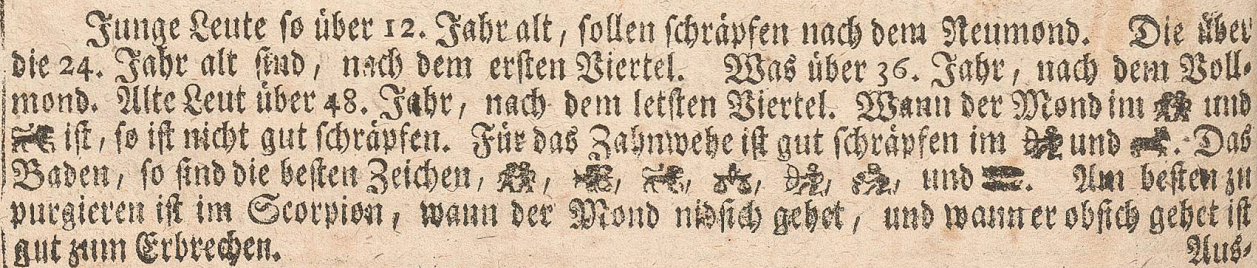 Junge Leute so über 12. Jahr alt, sollen schräpfen nach dem Neumond. Die über
die 24. Jahr alt sind, nach dem ersten Viertel. Was über 36. Jahr, nach dem Voll-
mond. Alte Leut über 48. Jahr, nach dem letsten Viertel. Wann der Mond im und
ist, so ist nicht gut schräpfen. Für das Zahnwehe ist gut schräpfen im und . Das
Baden, so sind die besten Zeichen, , , , , , , und . Am besten zu
purgieren ist im Scorpion, wann der Mond nidsich gehet, und wann er obsich gehet ist
gut zum Erbrechen.
Aus-